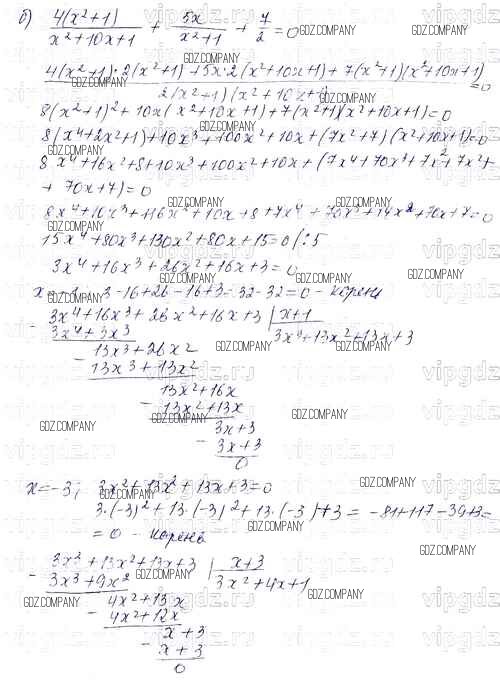 б) 4(x²+1)/(x²+10x+1) + 5x/(x²+1) + 7/2 = 0
(4(x²+1)·2(x²+1) + 5x·2(x²+10x+1) + 7(x²+1)(x²+10x+1))/(2(x²+1)(x²+10x+1)) = 0
8(x²+1)² + 10x(x²+10x+1) + 7(x²+1)(x²+10x+1) = 0
8(x⁴+2x²+1) + 10x³ + 100x² + 10x + (7x²+7)(x²+10x+1) = 0
8x⁴+16x²+8+10x³+100x²+10x+(7x⁴+70x³+7x²+7x²+
+ 70x+7) = 0
8x⁴+10x³+116x²+10x+8+7x⁴+70x³+14x²+70x+7=0
15x⁴+80x³+130x²+80x+15=0 |:5
3x⁴+16x³+26x²+16x+3=0
x=-1 3-16+26-16+3=32-32=0 - корень
- 3x⁴+16x³+26x²+16x+3 | x+1
3x⁴+3x³ 3x³+13x²+13x+3
13x³+26x²
- 13x³+13x²
13x²+16x
- 13x²+13x
3x+3
- 3x+3
0
x=-3; 3x³+13x²+13x+3=0
3·(-3)²+13·(-3)²+13·(-3)+3 = -81+117-39+3=
=0 - корень
- 3x³+13x²+13x+3 | x+3
3x³+9x² 3x²+4x+1
4x²+13x
- 4x²+12x
x+3
- x+3
0
GDZ.COMPANY
vipgdz